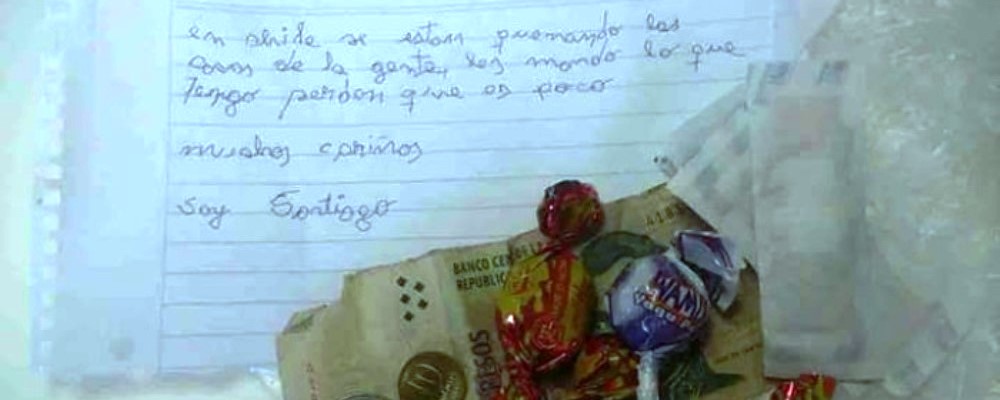 en shile se estan quemando las
casas de la gente, les mando lo que
Tengo perdon que es poco
muchos cariños
soy Santiago
BANCO CEN
REPUBLIC
PESOS
10